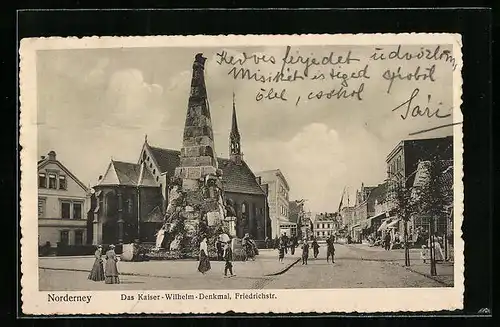 Kedves férjedet üdvözlöm
Misikét is téged
ölel, csókol
Sári
Norderney
Das Kaiser-Wilhelm-Denkmal, Friedrichstr.